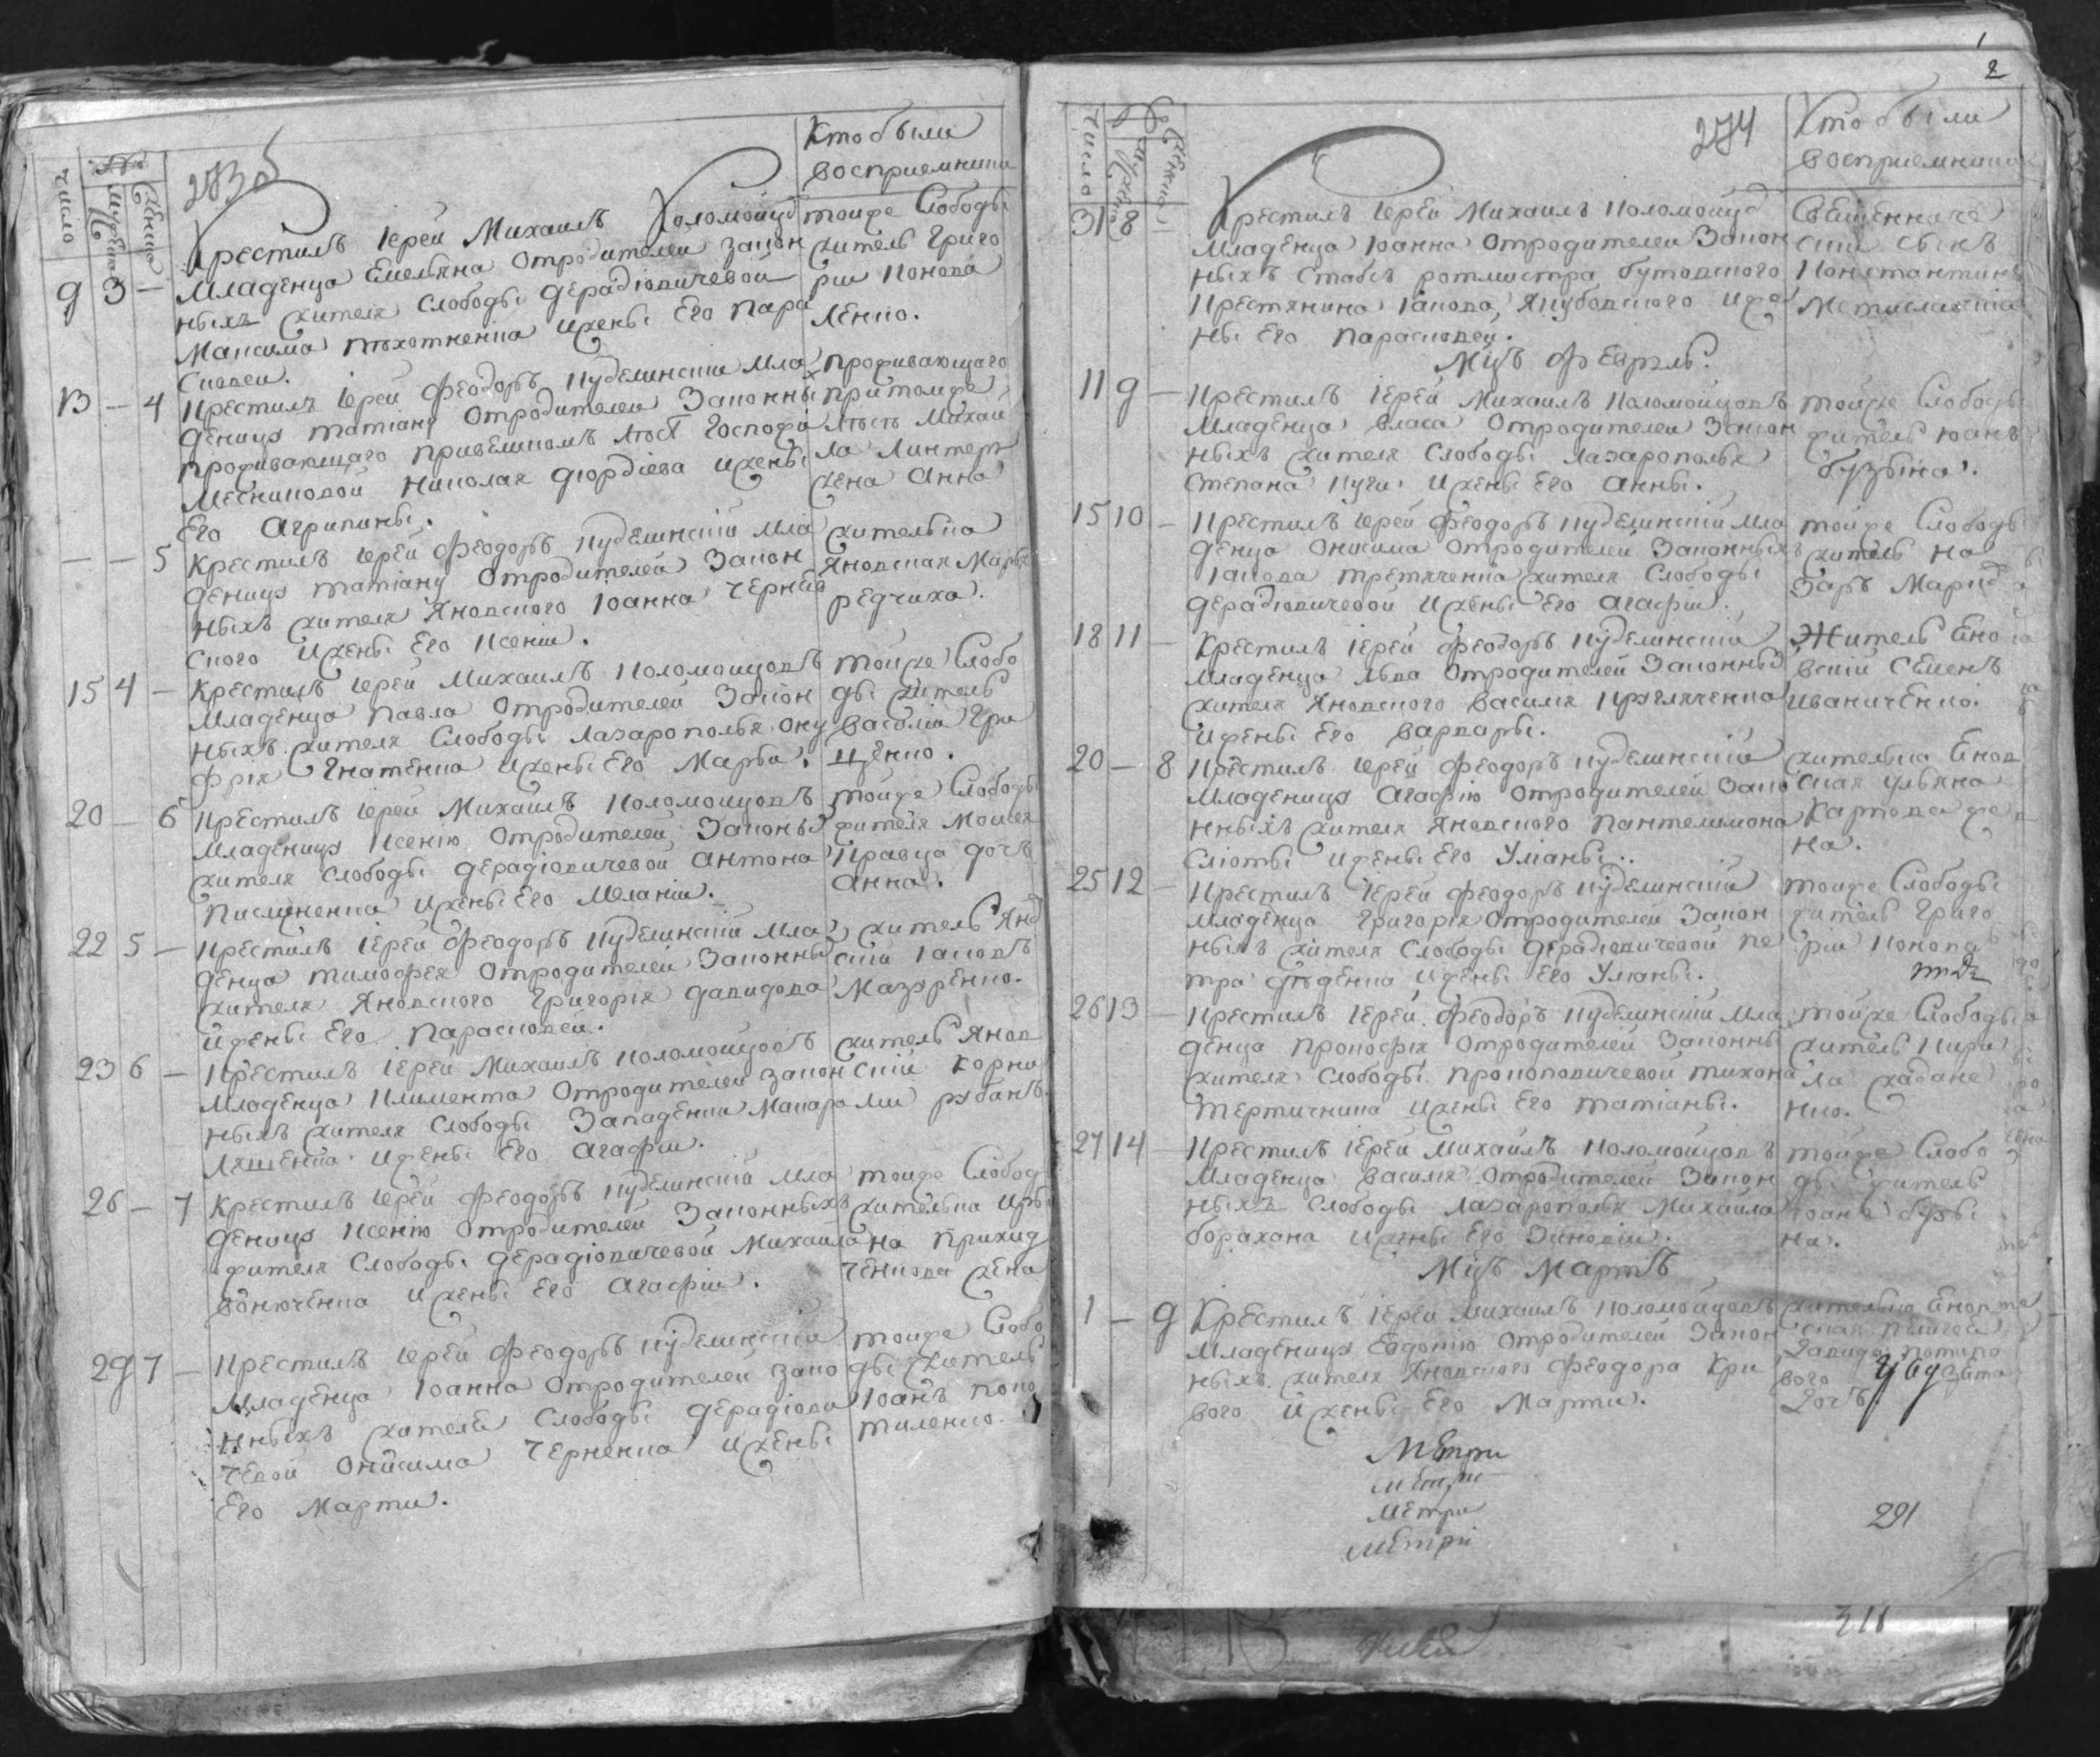 число
№
мужеска
женска
283 об
Кто были
восприемники
9 3 — Крестилъ Іерей Михаилъ Коломойц
младенца Емельяна отродителей закон
ныхъ жителя Слободы Дерадіовичевой
Максима Пехотненка ижены Его Пара
сковеи.
тойже Слободы
житель Григо
рій Конова
ленко.
13 — 4 Крестилъ Іерей Феодоръ Кудлинскій мла
деницу Татіану отродителей Законны
проживающаго
Мясниковой Николая Дюрдіева ижены
Его Агрипины.
проживающаго
притомже
Михай
ла
жена Анна
— — 5 Крестилъ Іерей Феодоръ Кудлинскій мла
деницу Татіану отродителей Закон
ныхъ жителя Яновского Іоанна Черняв
ского ижены Его Ксеніи.
жителька
Яновская Марѳа
редчиха.
15 4 — Крестилъ Іерей Михаилъ Коломойцовъ
младенца Павла отродителей Закон
ныхъ жителя Слободы Лазарополья Ону
фрія Гнатенка ижены Его Марѳы.
тойже Слобо
ды житель
Василій Гри
ценко.
20 — 6 Крестилъ Іерей Михаилъ Коломойцовъ
младеницу Ксенію отродителей Законны
жителя Слободы Дерадіовичевой Антона
ижены Его Меланіи.
тойже Слободы
жителя Моисея
Кравца дочь
Анна.
22 5 — Крестилъ Іерей Феодоръ Кудлинскій мла
денца Тимофея отродителей Законны
жителя Яновского Григорія Давидова
ижены Его Парасковеи.
житель Янов
скій Іаковъ
Мазуренко.
23 6 — Крестилъ Іерей Михаилъ Коломойцовъ
младенца Климента отродителей закон
ныхъ жителя Слободы Западенки Макара
Ляшенка ижены Его Агафіи.
житель Янов
скій Корни
лій рубанъ.
26 — 7 Крестилъ Іерей Феодоръ Кудлинскій мла
деницу Ксенію отродителей Законныхъ
жителя Слободы Дерадіовичевой Михаила
Вонюченка ижены Его Агафіи.
тойже Слобод
жителька Ири
на Приход
ченкова жена
29 7 — Крестилъ Іерей Феодоръ Кудлинскій
младенца Іоанна отродителей зако
нныхъ жителя Слободы Дерадіови
чевой Онисима Черненка ижены
Его Марти.
тойже Слобо
ды житель
Іоанъ Коно
тиленко.
2
число
мужеска
женска
284
Кто были
восприемники
31 8 Крестилъ Іерей Михаилъ Коломойц
младенца Іоанна отродителей Закон
ныхъ Стабсъ ротмистра Бутовского
Крестянина Іакова Якубовского иже
ны Его Парасковеи.
Священниче
скій сынъ
Константинъ
Мстиславскій
Мцъ Февраль.
11 9 — Крестилъ Іерей Михаилъ Коломойцовъ
младенца Власа отродителей Закон
ныхъ жителя Слободы Лазарополья
Степана Куги ижены Его Анны.
тойже Слободы
житель Іоанъ
Бузына.
15 10 — Крестилъ Іерей Феодоръ Кудлинскій мла
денца Онисима отродителей Законныхъ
Іакова Третяченка жителя Слободы
Дерадіовичевой ижены Его Агафіи.
тойже Слободы
житель На
заръ
18 11 — Крестилъ Іерей Феодоръ Кудлинскій
младенца Льва отродителей Законны
жителя Яновского Василія Кругляченка
ижены Его Варвары.
Житель Яно
вскій Семенъ
Иваниченко.
20 — 8 Крестилъ Іерей Феодоръ Кудлинскій
младеницу Агафію отродителей Зако
нныхъ жителя Яновского Пантелимона
Слюты ижены Его Уліаны.
жителька Янов
ская Ульяна
Карпова же
на.
25 12 — Крестилъ Іерей Феодоръ Кудлинскій
младенца Григорія отродителей Закон
ныхъ жителя Слободы Дерадіовичевой Пе
тра Деденка ижены Его Уліаны.
тойже Слободы
житель Григо
рій Конова
26 13 — Крестилъ Іерей Феодоръ Кудлинскій мла
денца Прокофія отродителей Законны
жителя Слободы Прокоповичевой Тихона
Тертичника ижены Его Татіаны.
тойже Слободы
житель Кири
ла Хадане
нко.
27 14 — Крестилъ Іерей Михаилъ Коломойцовъ
младенца Василія отродителей Закон
ныхъ Слободы Лазарополья Михаила
Борахана ижены Его Зиновіи.
тойже Слобо
ды житель
Іоанъ Бузы
на.
Мцъ Мартъ
1 — 9 Крестилъ Іерей Михаилъ Коломойцовъ
младеницу Евдокію отродителей Закон
ныхъ жителя Яновского Феодора Кри
вого ижены Его Марти.
жителька Янов
ская
Давида
дочь
Метри
Метри
Метри
Метри
291